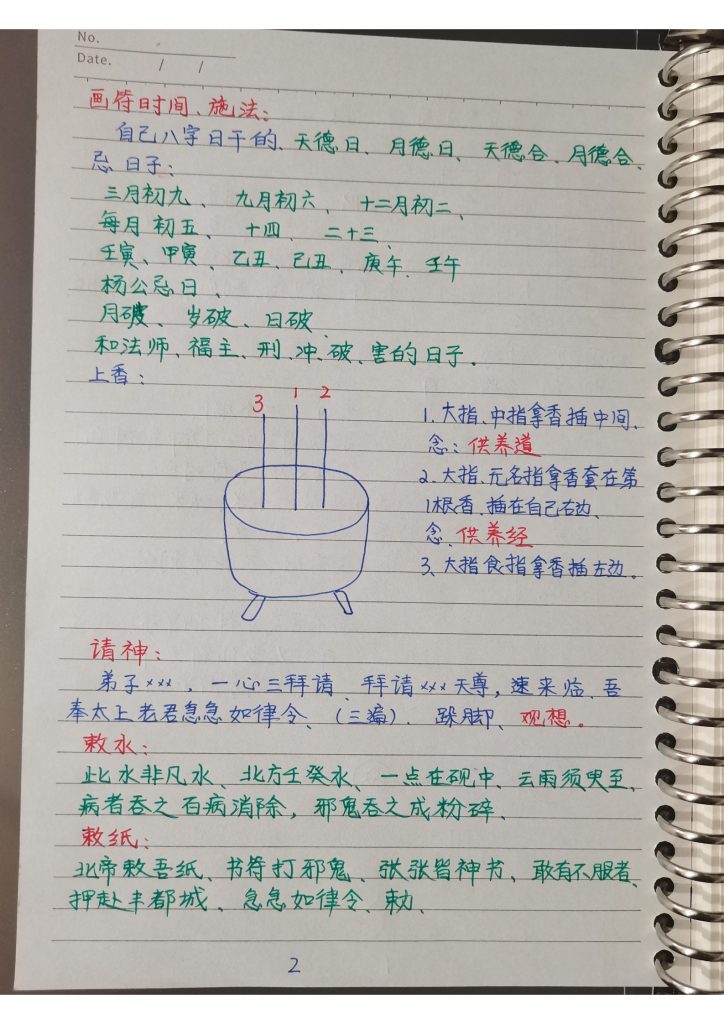 No.
Date. / /
画符时间、施法：
自己八字日干的、天德日、月德日、天德合、月德合、
忌日子：
三月初九、 九月初六、 十二月初二、
每月初五、 十四、 二十三、
壬寅、甲寅、乙丑、己丑、庚午、壬午
杨公忌日、
月破、岁破、日破、
和法师、福主、刑、冲、破、害的日子。
上香：
3 1 2
1. 大指、中指拿香插中间、
念：供养道
2. 大指、无名指拿香套在第
1根香、插在自己右边、
念、供养经
3、大指食指拿香插左边。
请神：
弟子×××，一心三拜请、拜请×××天尊，速来临、吾
奉太上老君急急如律令、（三遍）. 跺脚、观想。
敕水：
此水非凡水、北方壬癸水、一点在砚中、云雨须臾至、
病者吞之百病消除，邪鬼吞之成粉碎、
敕纸：
北帝敕吾纸、书符打邪鬼、张张皆神书、敢有不服者、
押赴丰都城、急急如律令、敕、
2